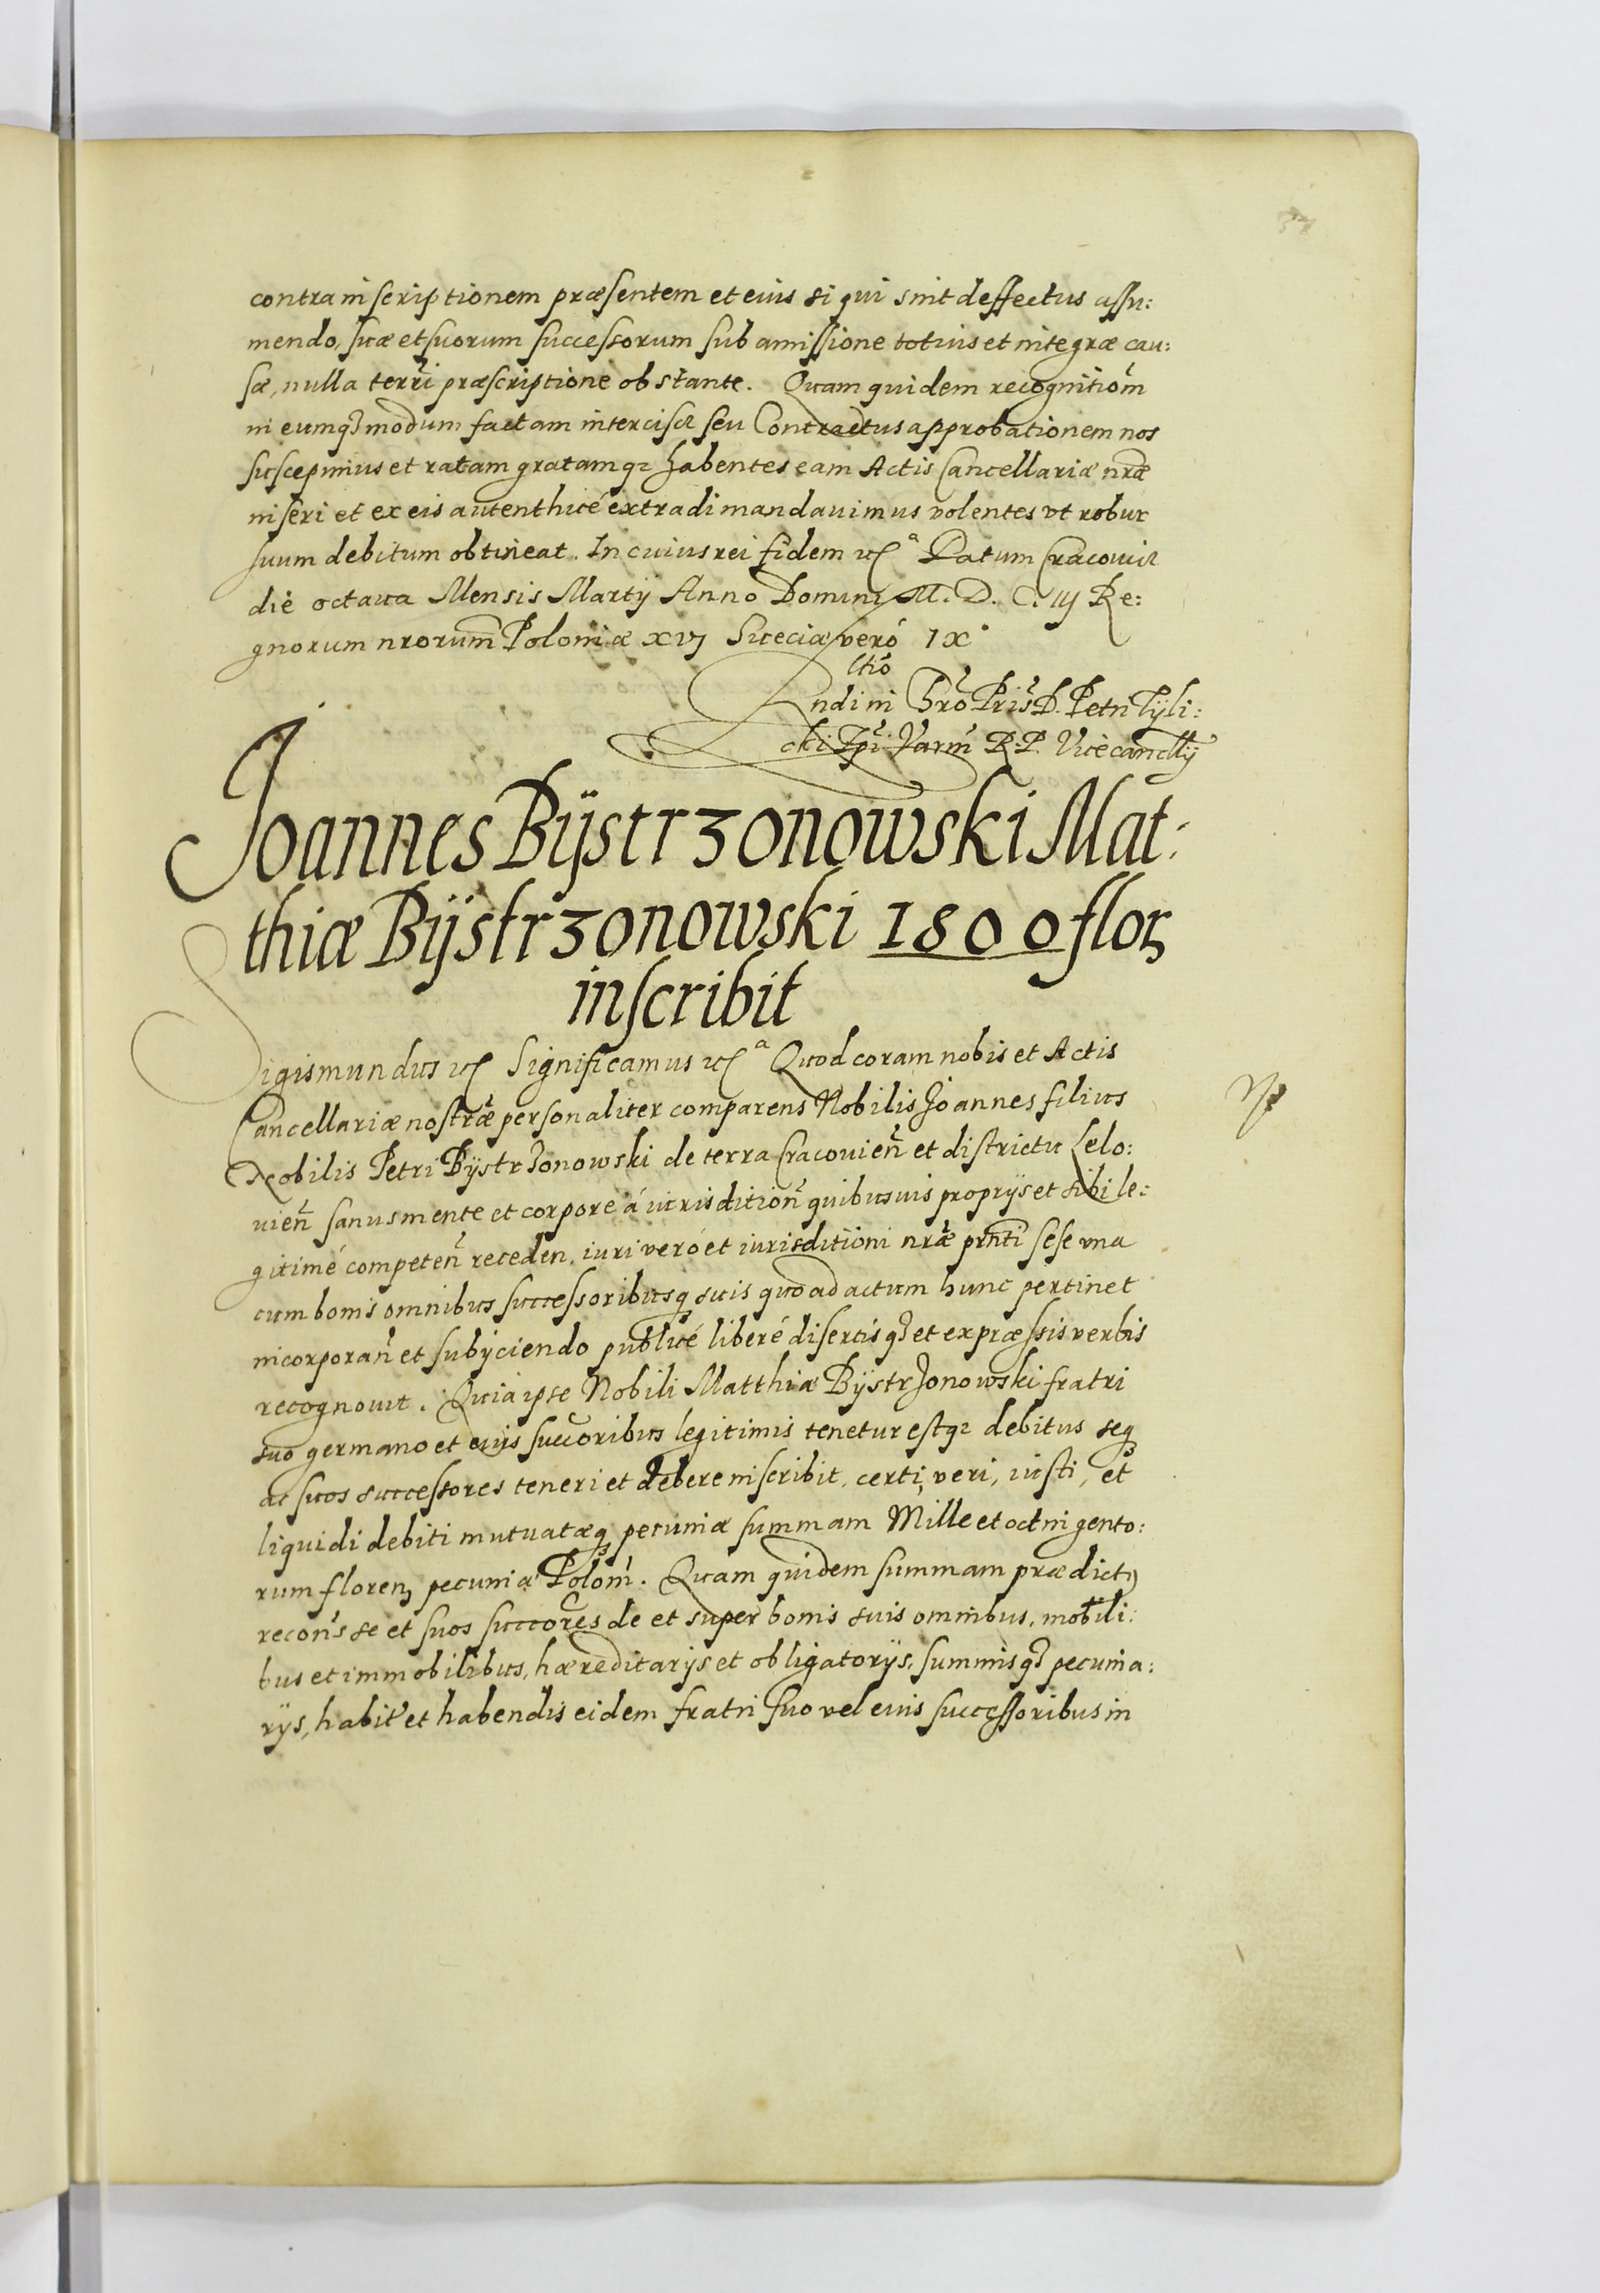 contra inscriptionem præsentem et eius si qui sint deffectus assu:
mendo, suæ et suorum successorum sub amissione totius et integræ cau:
sæ, nulla terri præscriptione obstante. Quam quidem recognitiom
in eumq3 modum factam intercisæ seu Contractus approbationem nos
suscepimus et ratam gratamq3 habentes eam Actis Cancellariæ nræ
inseri et ex eis autenthicé extradi mandauimus volentes vt robur
suum debitum obtineat. In cuius rei fidem etc a Datum Cracouiæ
die octaua Mensis Martij Anno Domini M. D. C. iij Re:
gnorum nrorum Poloniæ xvj Sueciæ veró ix
ctio
Rndi in Chro Pris D. Petri Tÿli:
cki Epi Varm R. P. Vicecancllij
Joannes Bÿstrzonowski Mat:
thiæ Bÿstrzonowski 1800 flor
inscribit
Sigismundus etc Significamus etc a Quod coram nobis et Actis
Cancellariæ nostræ personaliter comparens Nobilis Joannes filius
Nobilis Petri Bÿstrzonowski de terra Cracouien et districtu Lelo:
uien sanus mente et corpore á iurisdition quibusuis proprijs et sibi le:
gitimé competen receden, iuri veró et iurisditioni nræ prnti sese vna
cum bonis omnibus successoribusq3 suis quoad actum hunc pertinet
incorporan et subijciendo publicé liberé disertisq3 et expræssis verbis
recognouit. Quia ipse Nobili Matthiæ Bÿstrzonowski fratri
suo germano et eius succoribus legitimis tenetur estq3 debitus seq3
ac suos successores teneri et debere inscribit, certi, veri, iusti, et
liquidi debiti mutuatæq3 pecuniæ summam Mille et octingento:
rum floren pecuniæ Polom. Quam quidem summam prædict9
recons se et suos succores de et super bonis suis omnibus, mobili:
bus et immobilibus, hæreditarijs et obligatorijs, summisq3 pecunia:
rijs, habit et habendis eidem fratri suo vel eius successoribus in